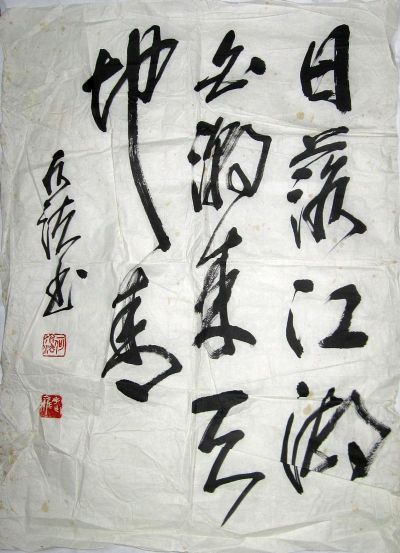 日落江湖
白潮来天
地青
书